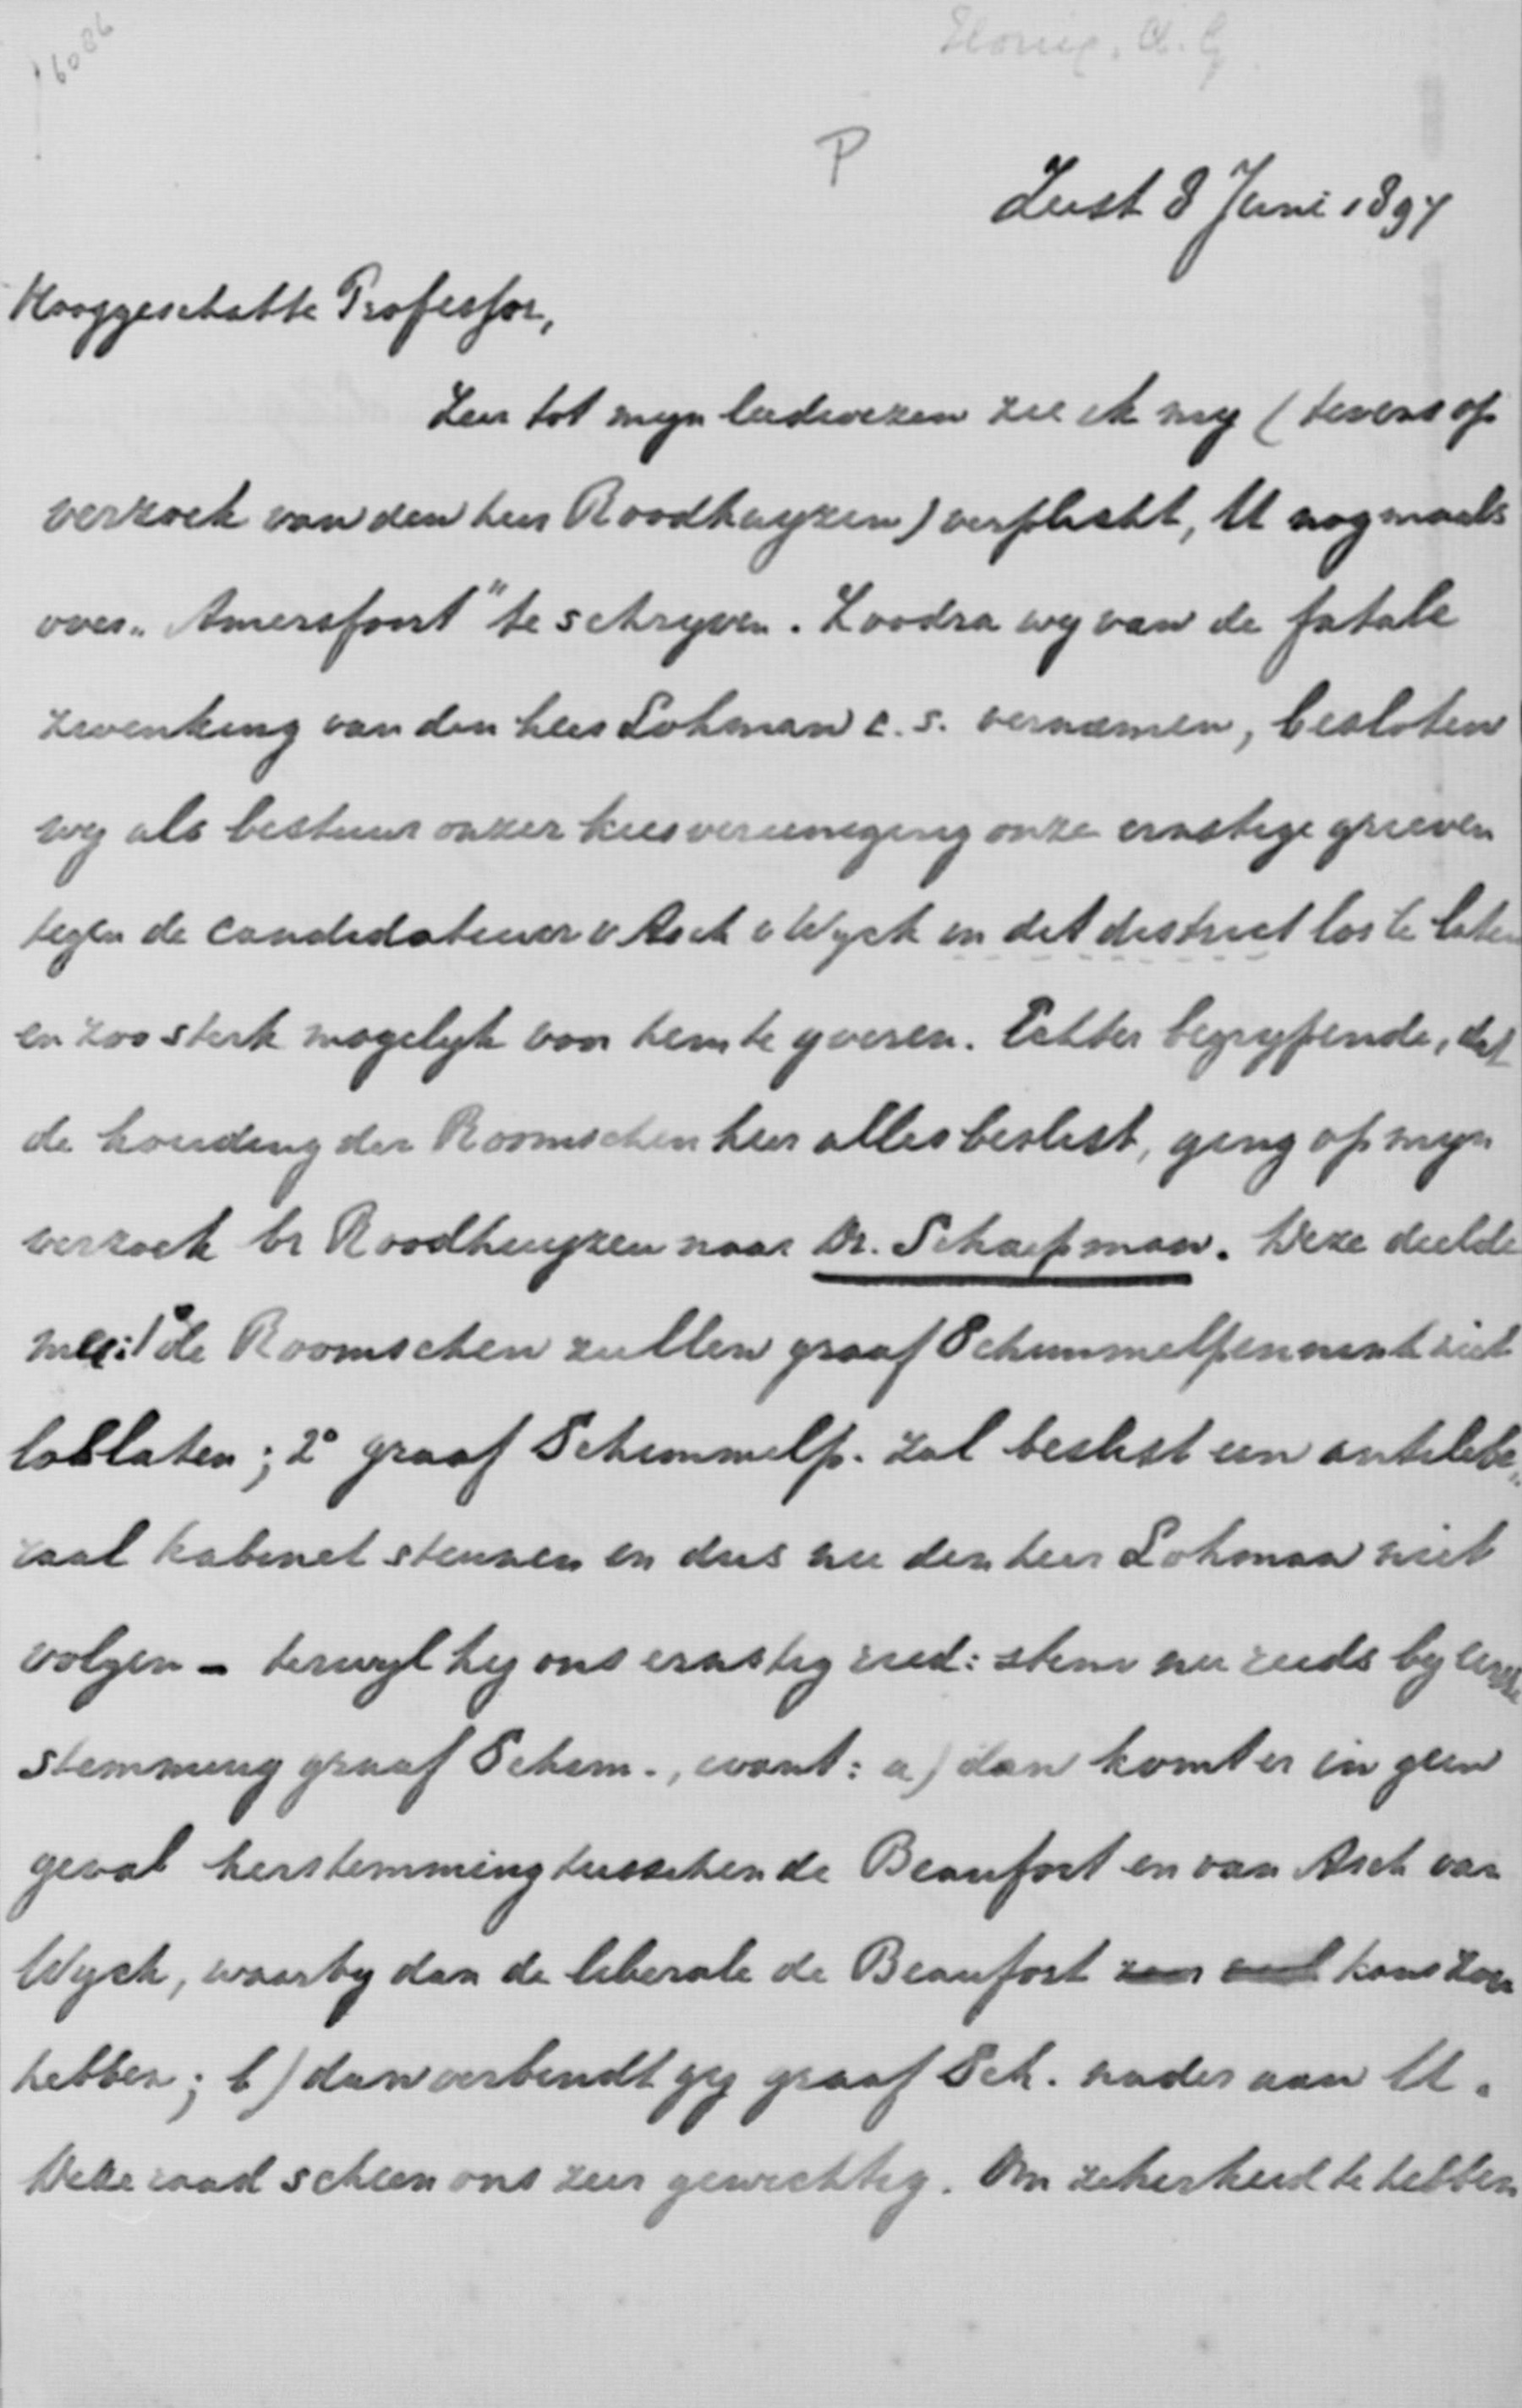 6086
Honig. A. G
P
Zeist 8 Juni 1897
Hooggeschatte Professor,
Zeer tot mijn leedwezen zie ik mij (tevens op
verzoek van den heer Roodhuyzen) verplicht, U nogmaals
over „Amersfoort" te schrijven. Zoodra wij van de fatale
zwenking van den heer Lohman c.s. vernamen, besloten
wij als bestuur onzer kiesvereeniging onze ernstige grieven
tegen de candidatuur v Asch v Wyck in dit district los te laten
en zoo sterk mogelijk voor hem te ijveren. Echter begrijpende, dat
de houding der Roomschen hier alles beslist, ging op mijn
verzoek br Roodhuyzen naar Dr. Schaepman. Deze deelde
mee: 1° de Roomschen zullen graaf Schimmelpennink niet
loslaten; 2° graaf Schimmelp. zal beslist een antilibe„
raal kabinet steunen en dus nu den heer Lohman niet
volgen – terwijl hij ons ernstig ried: stem nu reeds bij eerste
stemming graaf Schim., want: a) dan komt er in geen
geval herstemming tusschen de Beaufort en van Asch van
Wyck, waarbij dan de liberale de Beaufort kans zou
hebben; b) dan verbindt gij graaf Sch. nader aan U.
Deze raad scheen ons zeer gewichtig. Om zekerheid te hebben